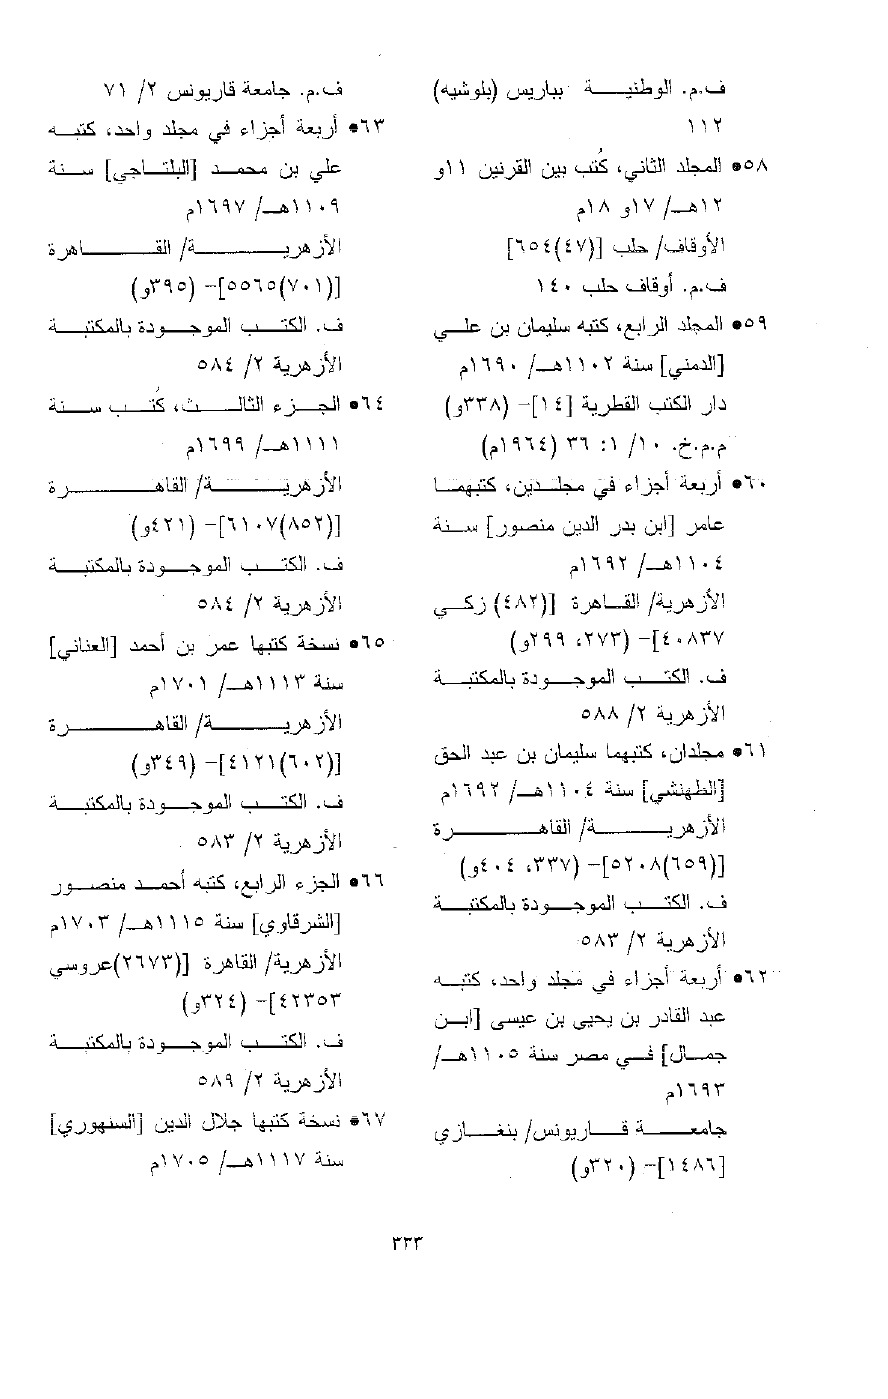 ف.م. الوطنية بباريس (بلوشيه)
١١٢
٥٨• المجلد الثاني، كُتب بين القرنين ١١و
١٢هـ/ ١٧و ١٨م
الأوقاف/ حلب [(٤٧)٦٥٤]
ف.م. أوقاف حلب ١٤٠
٥٩• المجلد الرابع، كتبه سليمان بن علي
[الدمني] سنة ١١٠٢هـ/ ١٦٩٠م
دار الكتب القطرية [١٤]- (٣٣٨و)
م.م.خ. ١٠/ ١: ٣٦ (١٩٦٤م)
٦٠• أربعة أجزاء في مجلدين، كتبهما
عامر [ابن بدر الدين منصور] سنة
١١٠٤هـ/ ١٦٩٢م
الأزهرية/ القاهرة [(٤٨٢) زكي
٤٠٨٣٧]- (٢٧٣، ٢٩٩و)
ف. الكتب الموجودة بالمكتبة
الأزهرية ٢/ ٥٨٨
٦١• مجلدان، كتبهما سليمان بن عبد الحق
[الطهنشي] سنة ١١٠٤هـ/ ١٦٩٢م
الأزهرية/ القاهرة
[(٦٥٩)٥٢٠٨]- (٣٣٧، ٤٠٤و)
ف. الكتب الموجودة بالمكتبة
الأزهرية ٢/ ٥٨٣
٦٢• أربعة أجزاء في مجلد واحد، كتبه
عبد القادر بن يحيى بن عيسى [ابن
جمال] في مصر سنة ١١٠٥هـ/
١٦٩٣م
جامعة قاريونس/ بنغازي
[١٤٨٦]- (٣٢٠و)
ف.م. جامعة قاريونس ٢/ ٧١
٦٣• أربعة أجزاء في مجلد واحد، كتبه
علي بن محمد [البلتاجي] سنة
١١٠٩هـ/ ١٦٩٧م
الأزهرية/ القاهرة
[(٧٠١)٥٥٦٥]- (٣٩٥و)
ف. الكتب الموجودة بالمكتبة
الأزهرية ٢/ ٥٨٤
٦٤• الجزء الثالث، كُتب سنة
١١١١هـ/ ١٦٩٩م
الأزهرية/ القاهرة
[(٨٥٢)٦١٠٧]- (٤٢١و)
ف. الكتب الموجودة بالمكتبة
الأزهرية ٢/ ٥٨٤
٦٥• نسخة كتبها عمر بن أحمد [العناني]
سنة ١١١٣هـ/ ١٧٠١م
الأزهرية/ القاهرة
[(٦٠٢)٤١٢١]- (٣٤٩و)
ف. الكتب الموجودة بالمكتبة
الأزهرية ٢/ ٥٨٣
٦٦• الجزء الرابع، كتبه أحمد منصور
[الشرقاوي] سنة ١١١٥هـ/ ١٧٠٣م
الأزهرية/ القاهرة [(٢٦٧٣)عروسي
٤٢٣٥٣]- (٣٢٤و)
ف. الكتب الموجودة بالمكتبة
الأزهرية ٢/ ٥٨٩
٦٧• نسخة كتبها جلال الدين [السنهوري]
سنة ١١١٧هـ/ ١٧٠٥م
٣٣٣